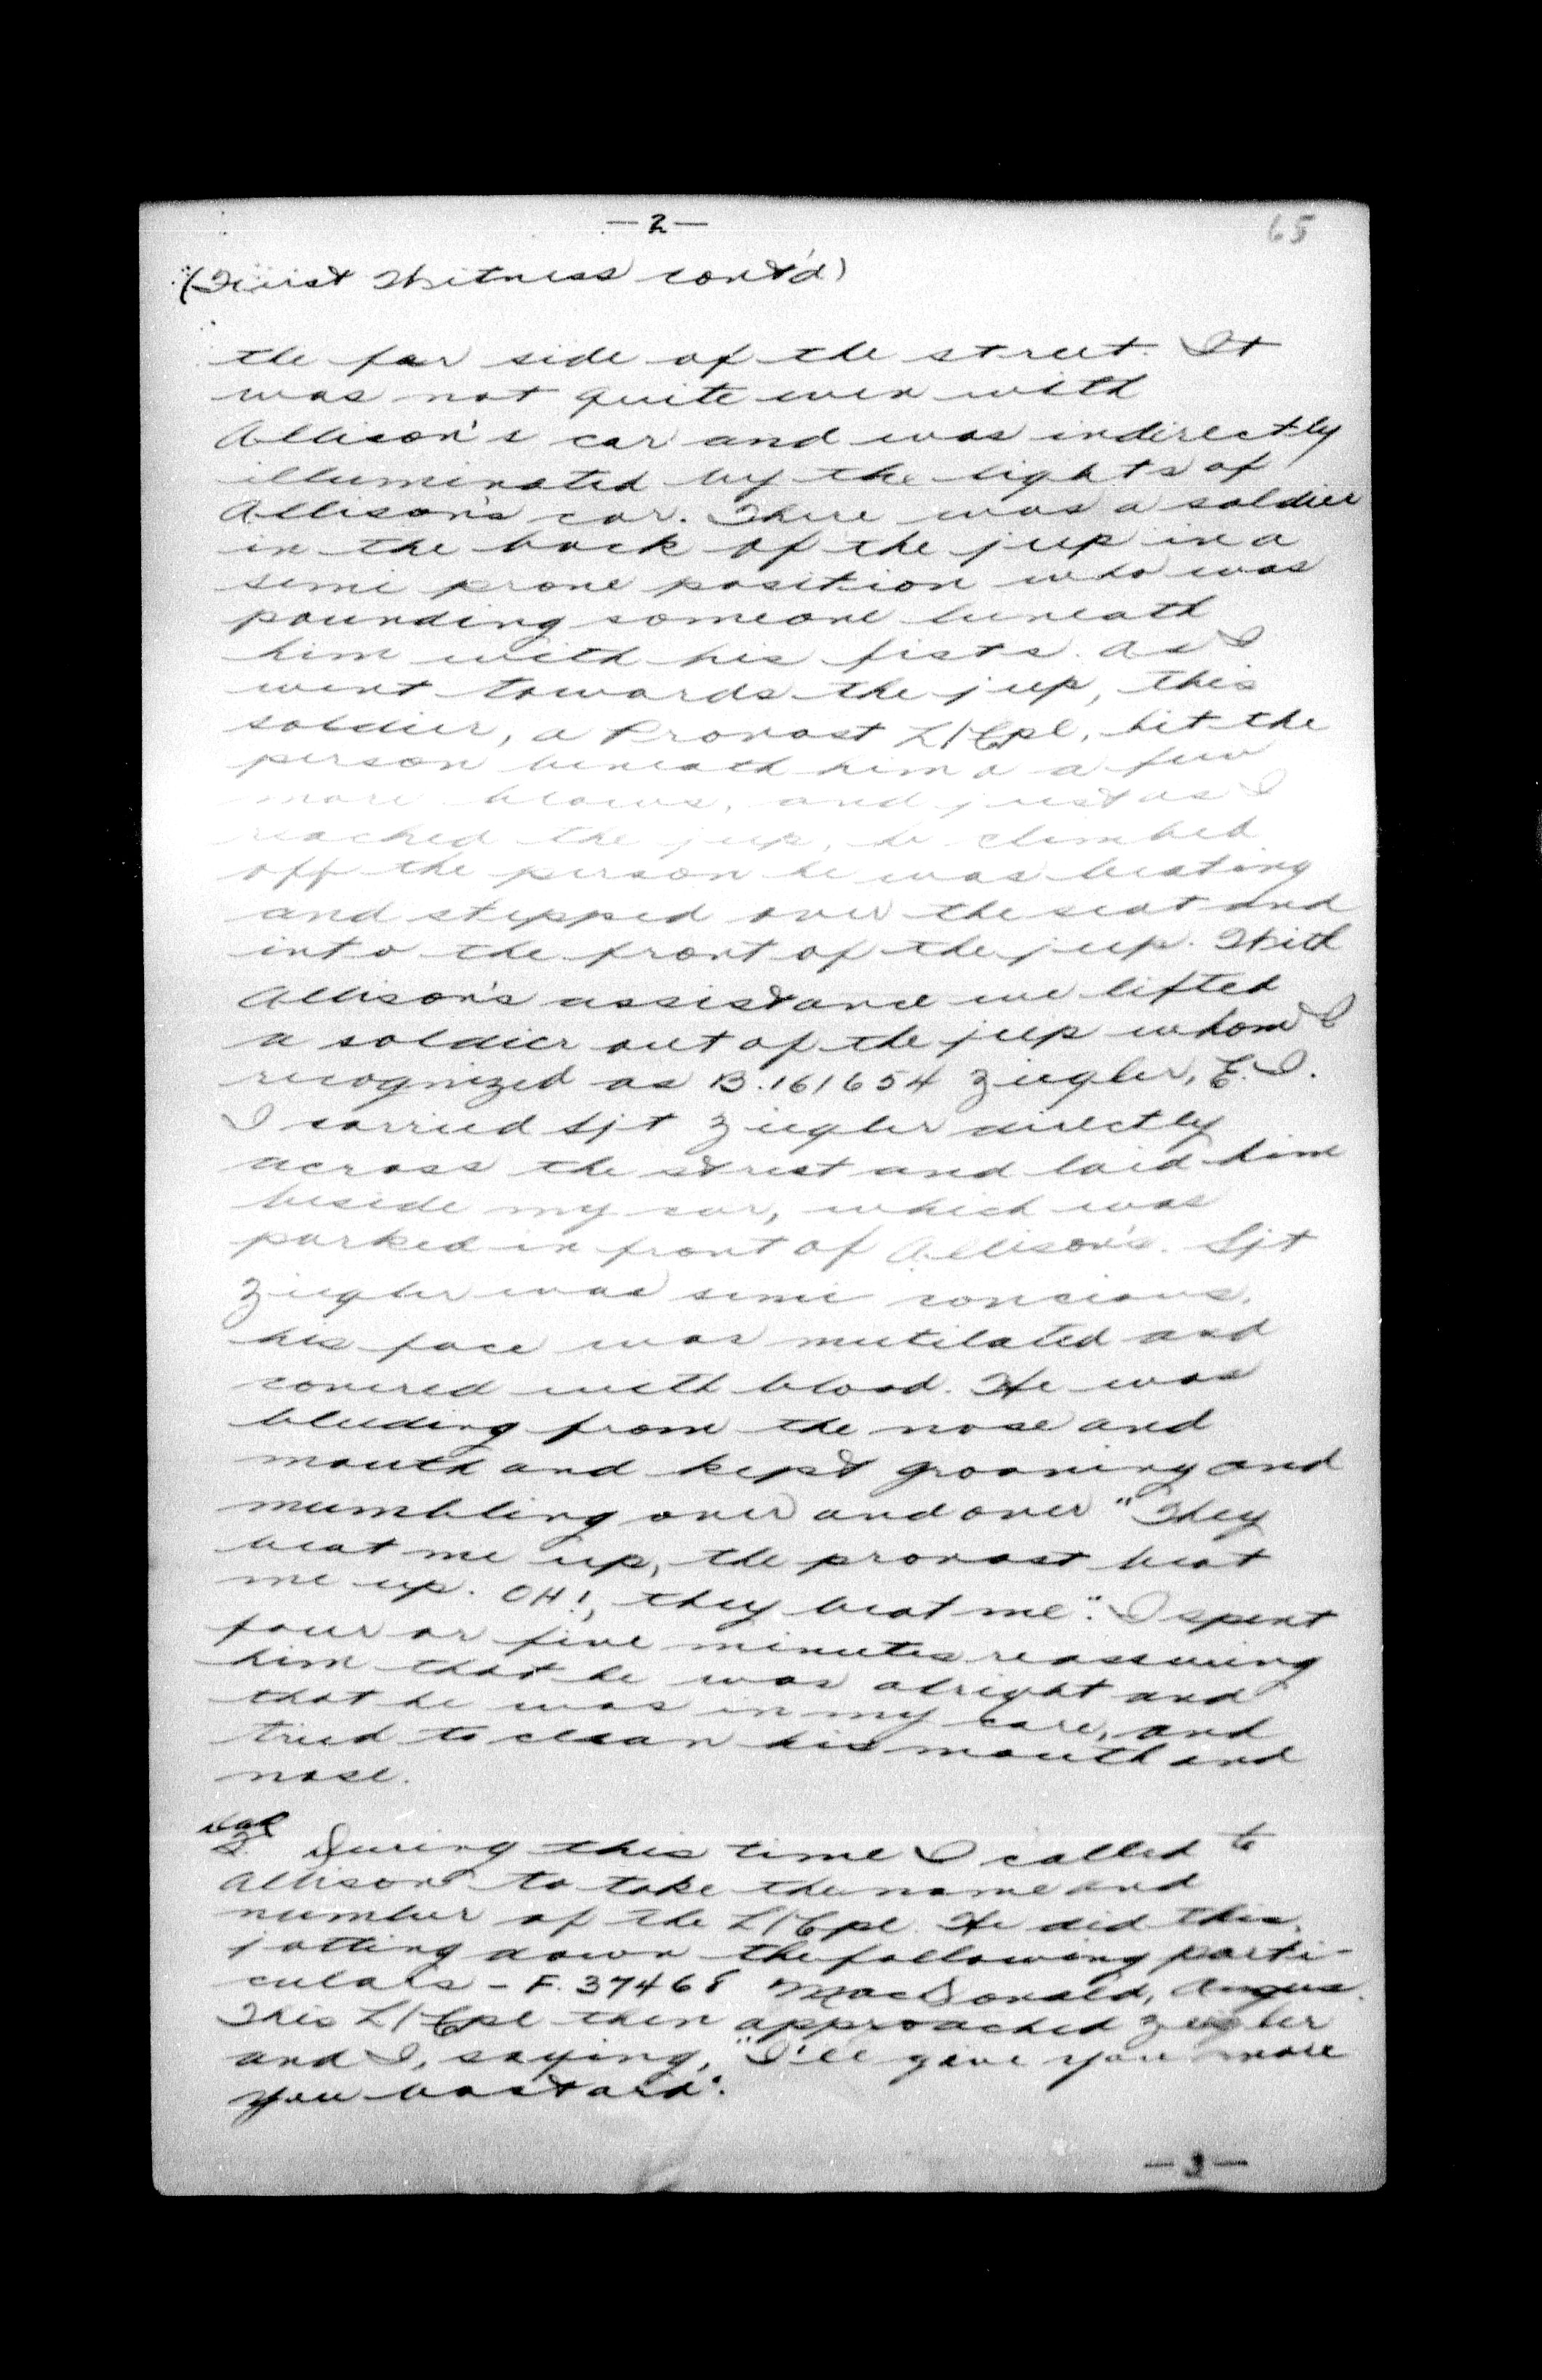 —2—
65
(First Witness cont'd)
the far side of the street. It
was not quite even with
Allison's car and was indirectly
illuminated by the lights of
Allison's car. There was a soldier
in the back of the jeep in a
semi prone position who was
pounding someone beneath
him with his fists. As I
went towards the jeep, this
soldier, a Provost L/Cpl, hit the
person beneath him a few
more blows, and just as I
reached the jeep, he climbed
off the person he was beating
and stepped over the seat and
into the front of the jeep. With
Allison's assistance we lifted
a soldier out of the jeep whom I
recognized as B.161654 Ziegler, E.I.
I carried Sjt Ziegler directly
across the street and laid him
beside my car, which was
parked in front of Allison's. Sjt
Ziegler was semi concious,
his face was mutilated and
covered with blood. He was
bleeding from the nose and
mouth and kept groaning and
mumbling over and over "They
beat me up, the provost beat
me up. OH!, they beat me". I spent
four or five minutes reassuring
him that he was alright and
that he was in my care, and
tried to clean his mouth and
nose.
2. During this time I called to
Allison to take the name and
number of the L/Cpl. He did this,
jotting down the following parti-
culars - F.37468 MacDonald, Angus.
This L/Cpl then approached Ziegler
and I, saying, "I'll give you more
you bastard".
—3—